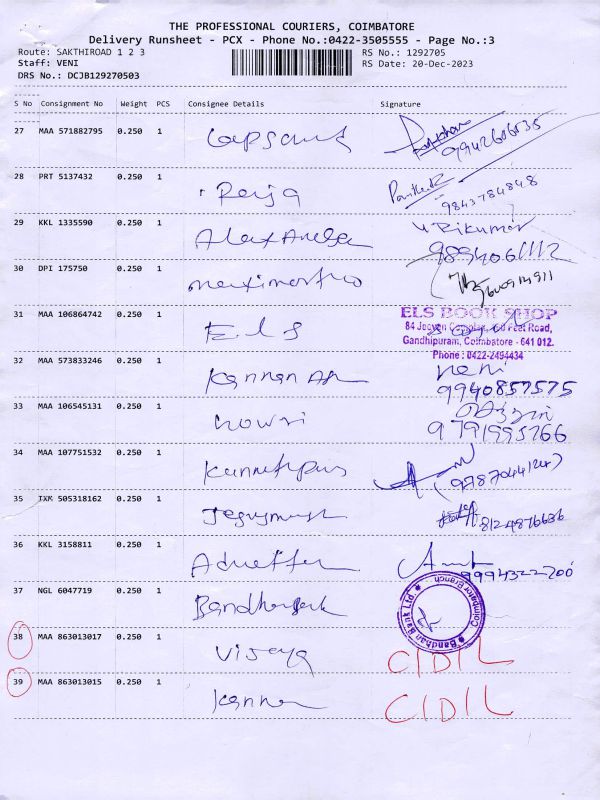 THE PROFESSIONAL COURIERS, COIMBATORE
Delivery Runsheet - PCX - Phone No.:0422-3505555 - Page No.:3
Route: SAKTHIROAD 1 2 3 RS No.: 1292705
Staff: VENI RS Date: 20-Dec-2023
DRS No.: DCJB129270503
S No Consignment No Weight PCS Consignee Details Signature
27 MAA 571882795 0.250 1
9942606035
28 PRT 5137432 0.250 1 Renja
9843784848
29 KKL 1335590 0.250 1 Alexander
9894061112
30 DPI 175750 0.250 1
31 MAA 106864742 0.250 1 Els
ELS BOOK SHOP
84 Jeevan Complex, 60 Feet Road,
Gandhipuram, Coimbatore - 641 012.
Phone : 0422-2494434
32 MAA 573833246 0.250 1 Kannan
9940857575
33 MAA 106545131 0.250 1 Gowri
9791995766
34 MAA 107751532 0.250 1
35 TXM 505318162 0.250 1
8124876636
36 KKL 3158811 0.250 1
9994322200
37 NGL 6047719 0.250 1 Bandhan
Bandhan Bank Ltd. Coimbatore Branch
38 MAA 863013017 0.250 1 Vijaya
39 MAA 863013015 0.250 1 Kannan